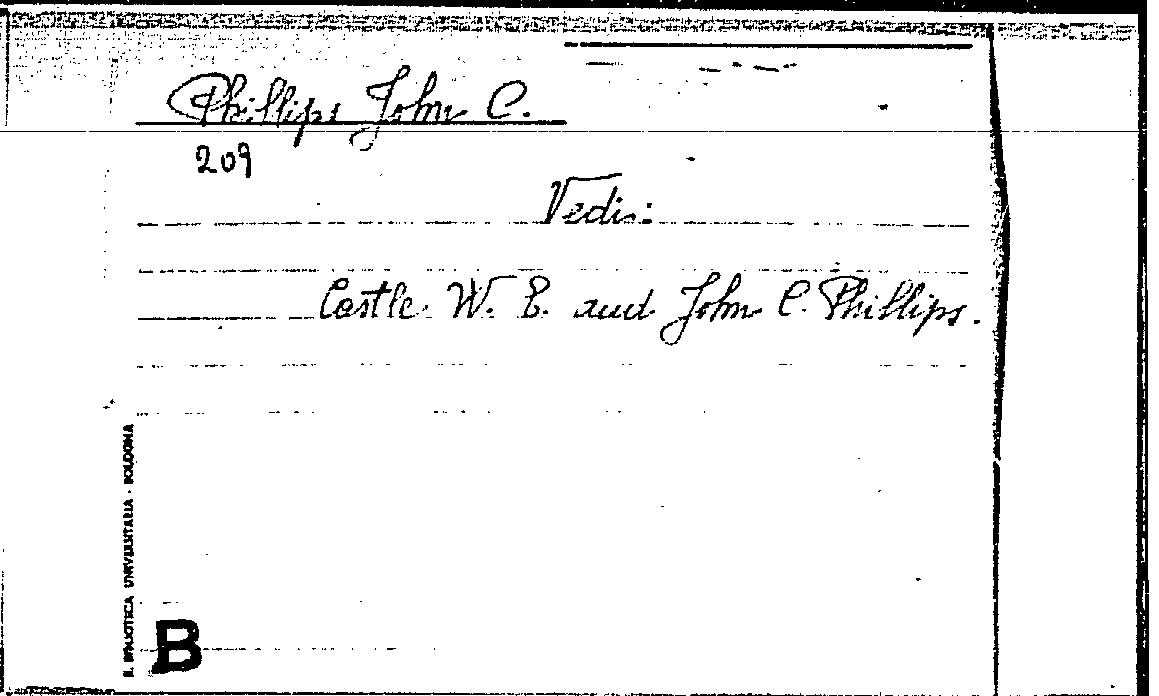 Phillips John C.
209
Vedi:
Castle W. E. and John C. Phillips.
R. BIBLIOTECA UNIVERSITARIA - BOLOGNA
B